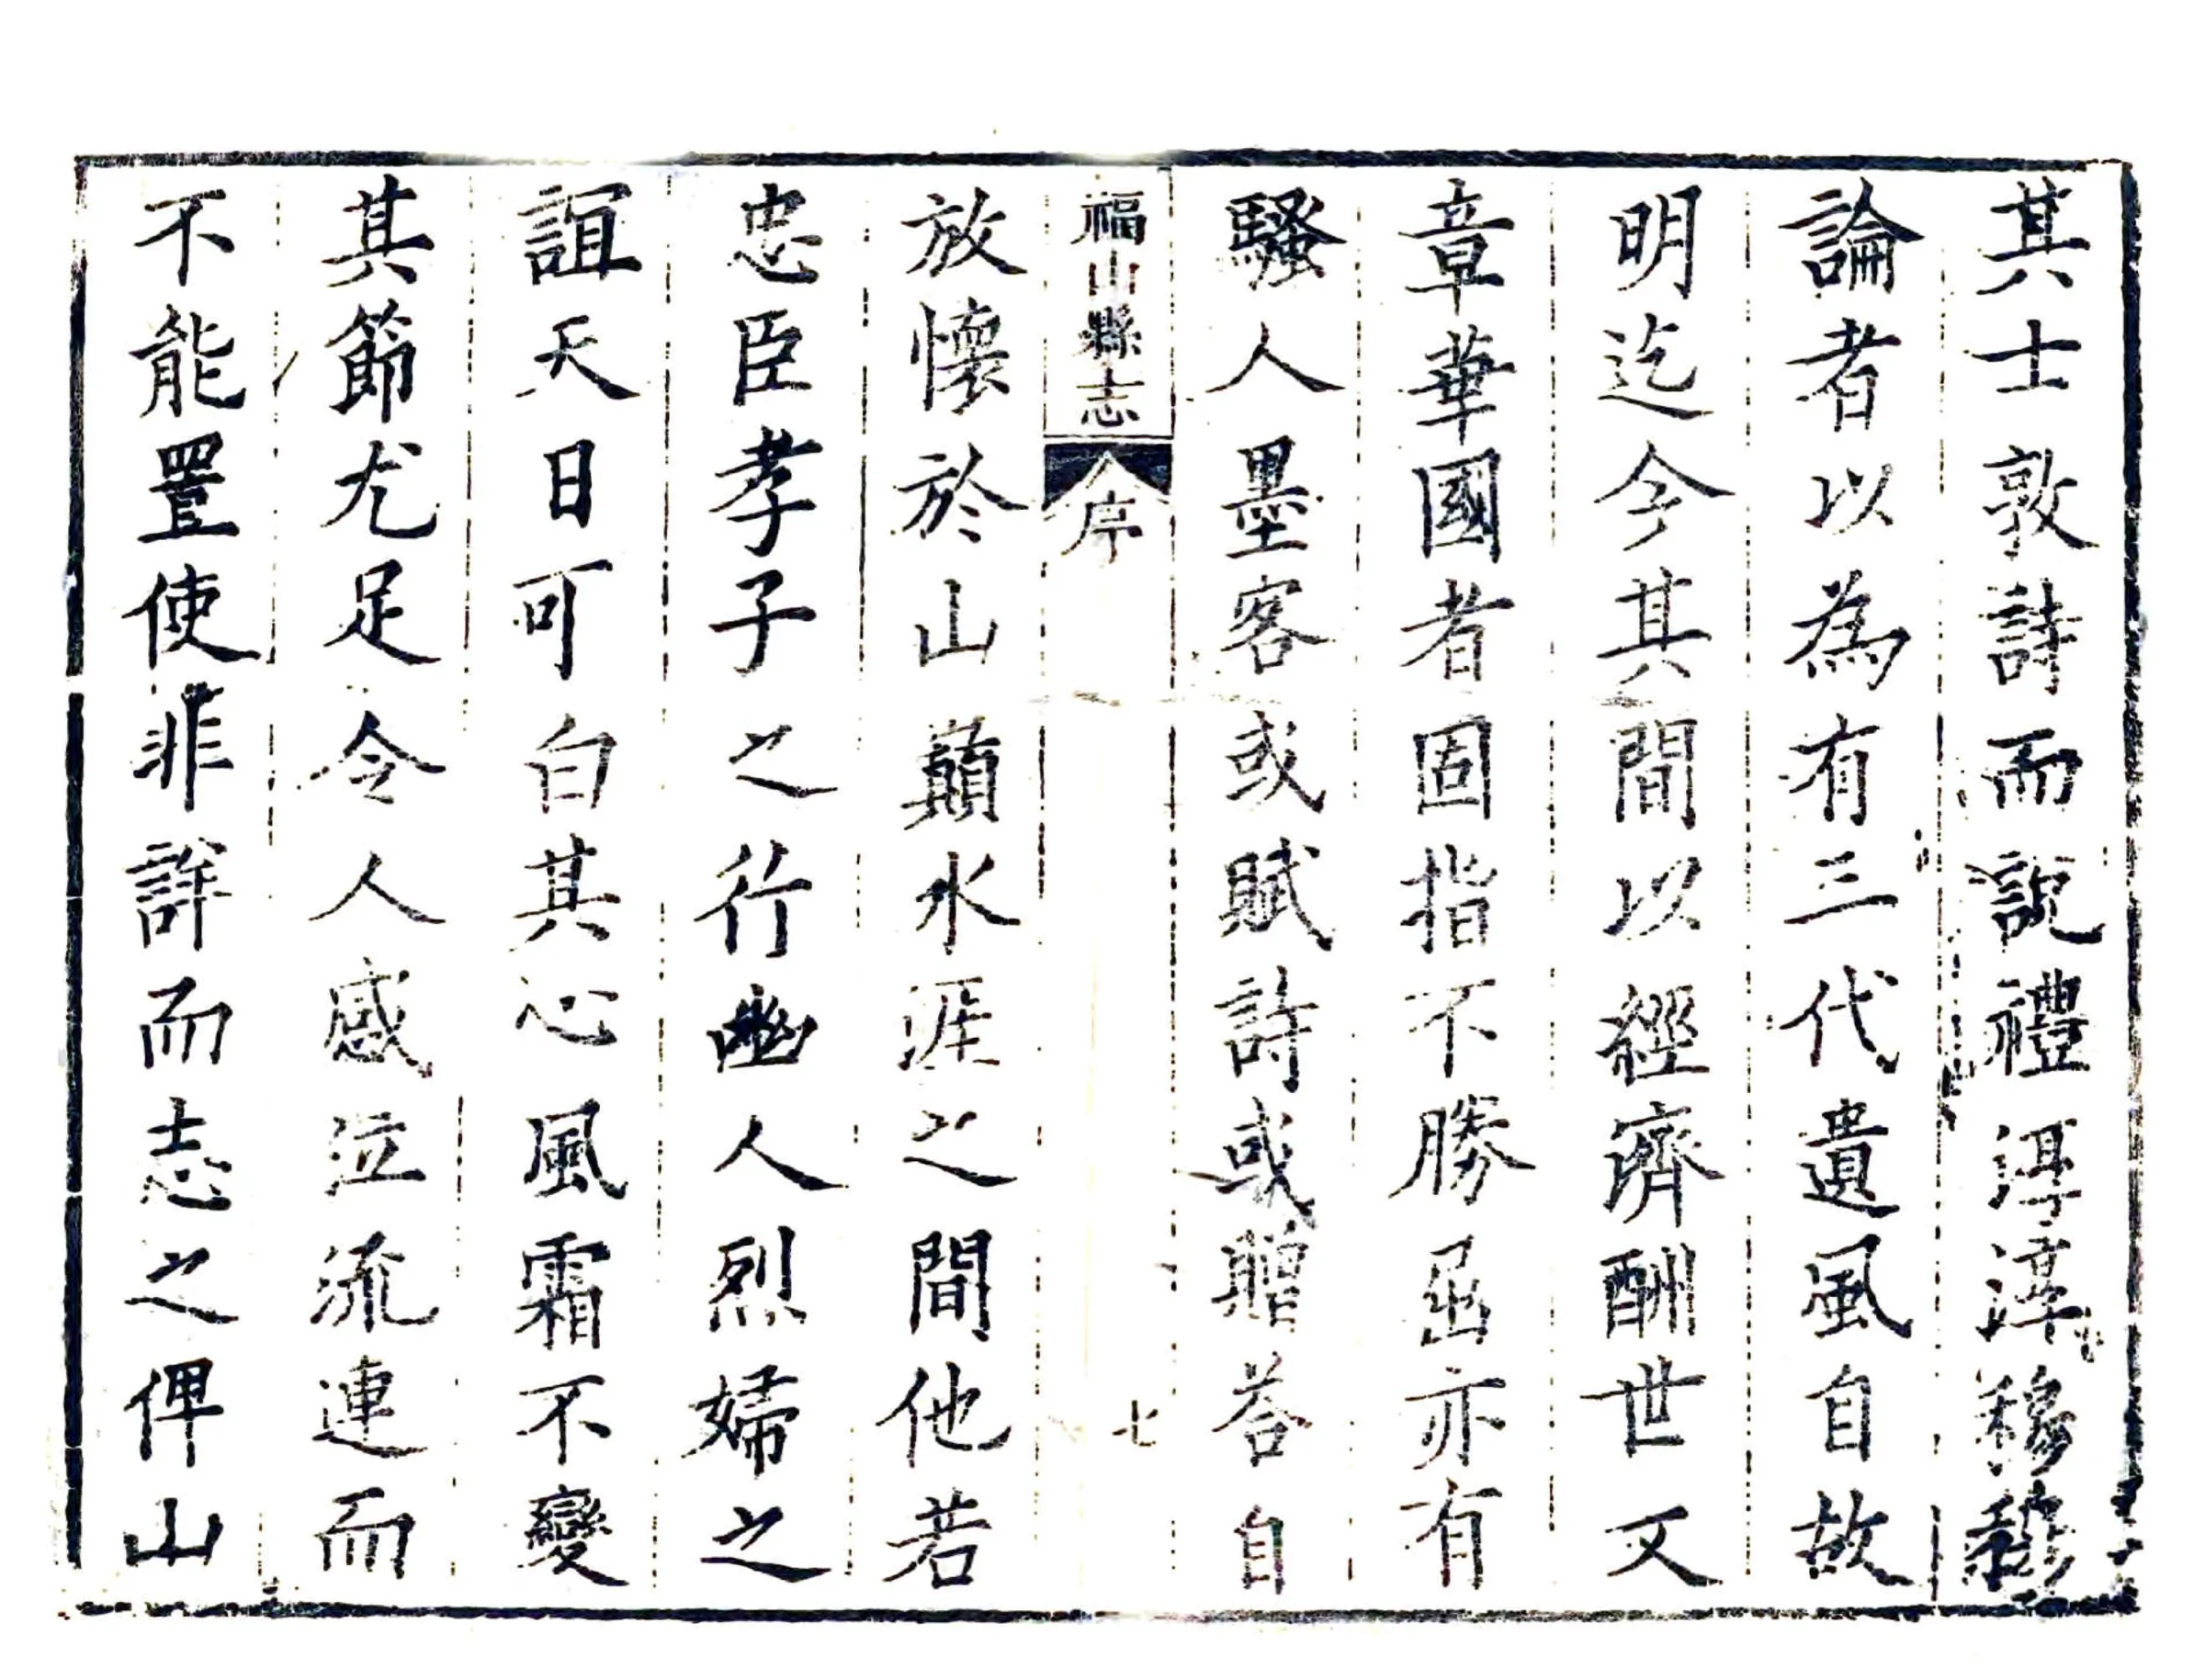 其士敦詩而說禮淳淳穆穆
論者以為有三代遺風自故
明迄今其間以經濟酬世文
章華國者固指不勝屈亦有
騷人墨客或賦詩或贈荅自
福山縣志 序 七
放懷於山巔水涯之間他若
忠臣孝子之行幽人烈婦之
誼天日可白其心風霜不變
其節尤足令人感泣流連而
不能置使非詳而志之俾山